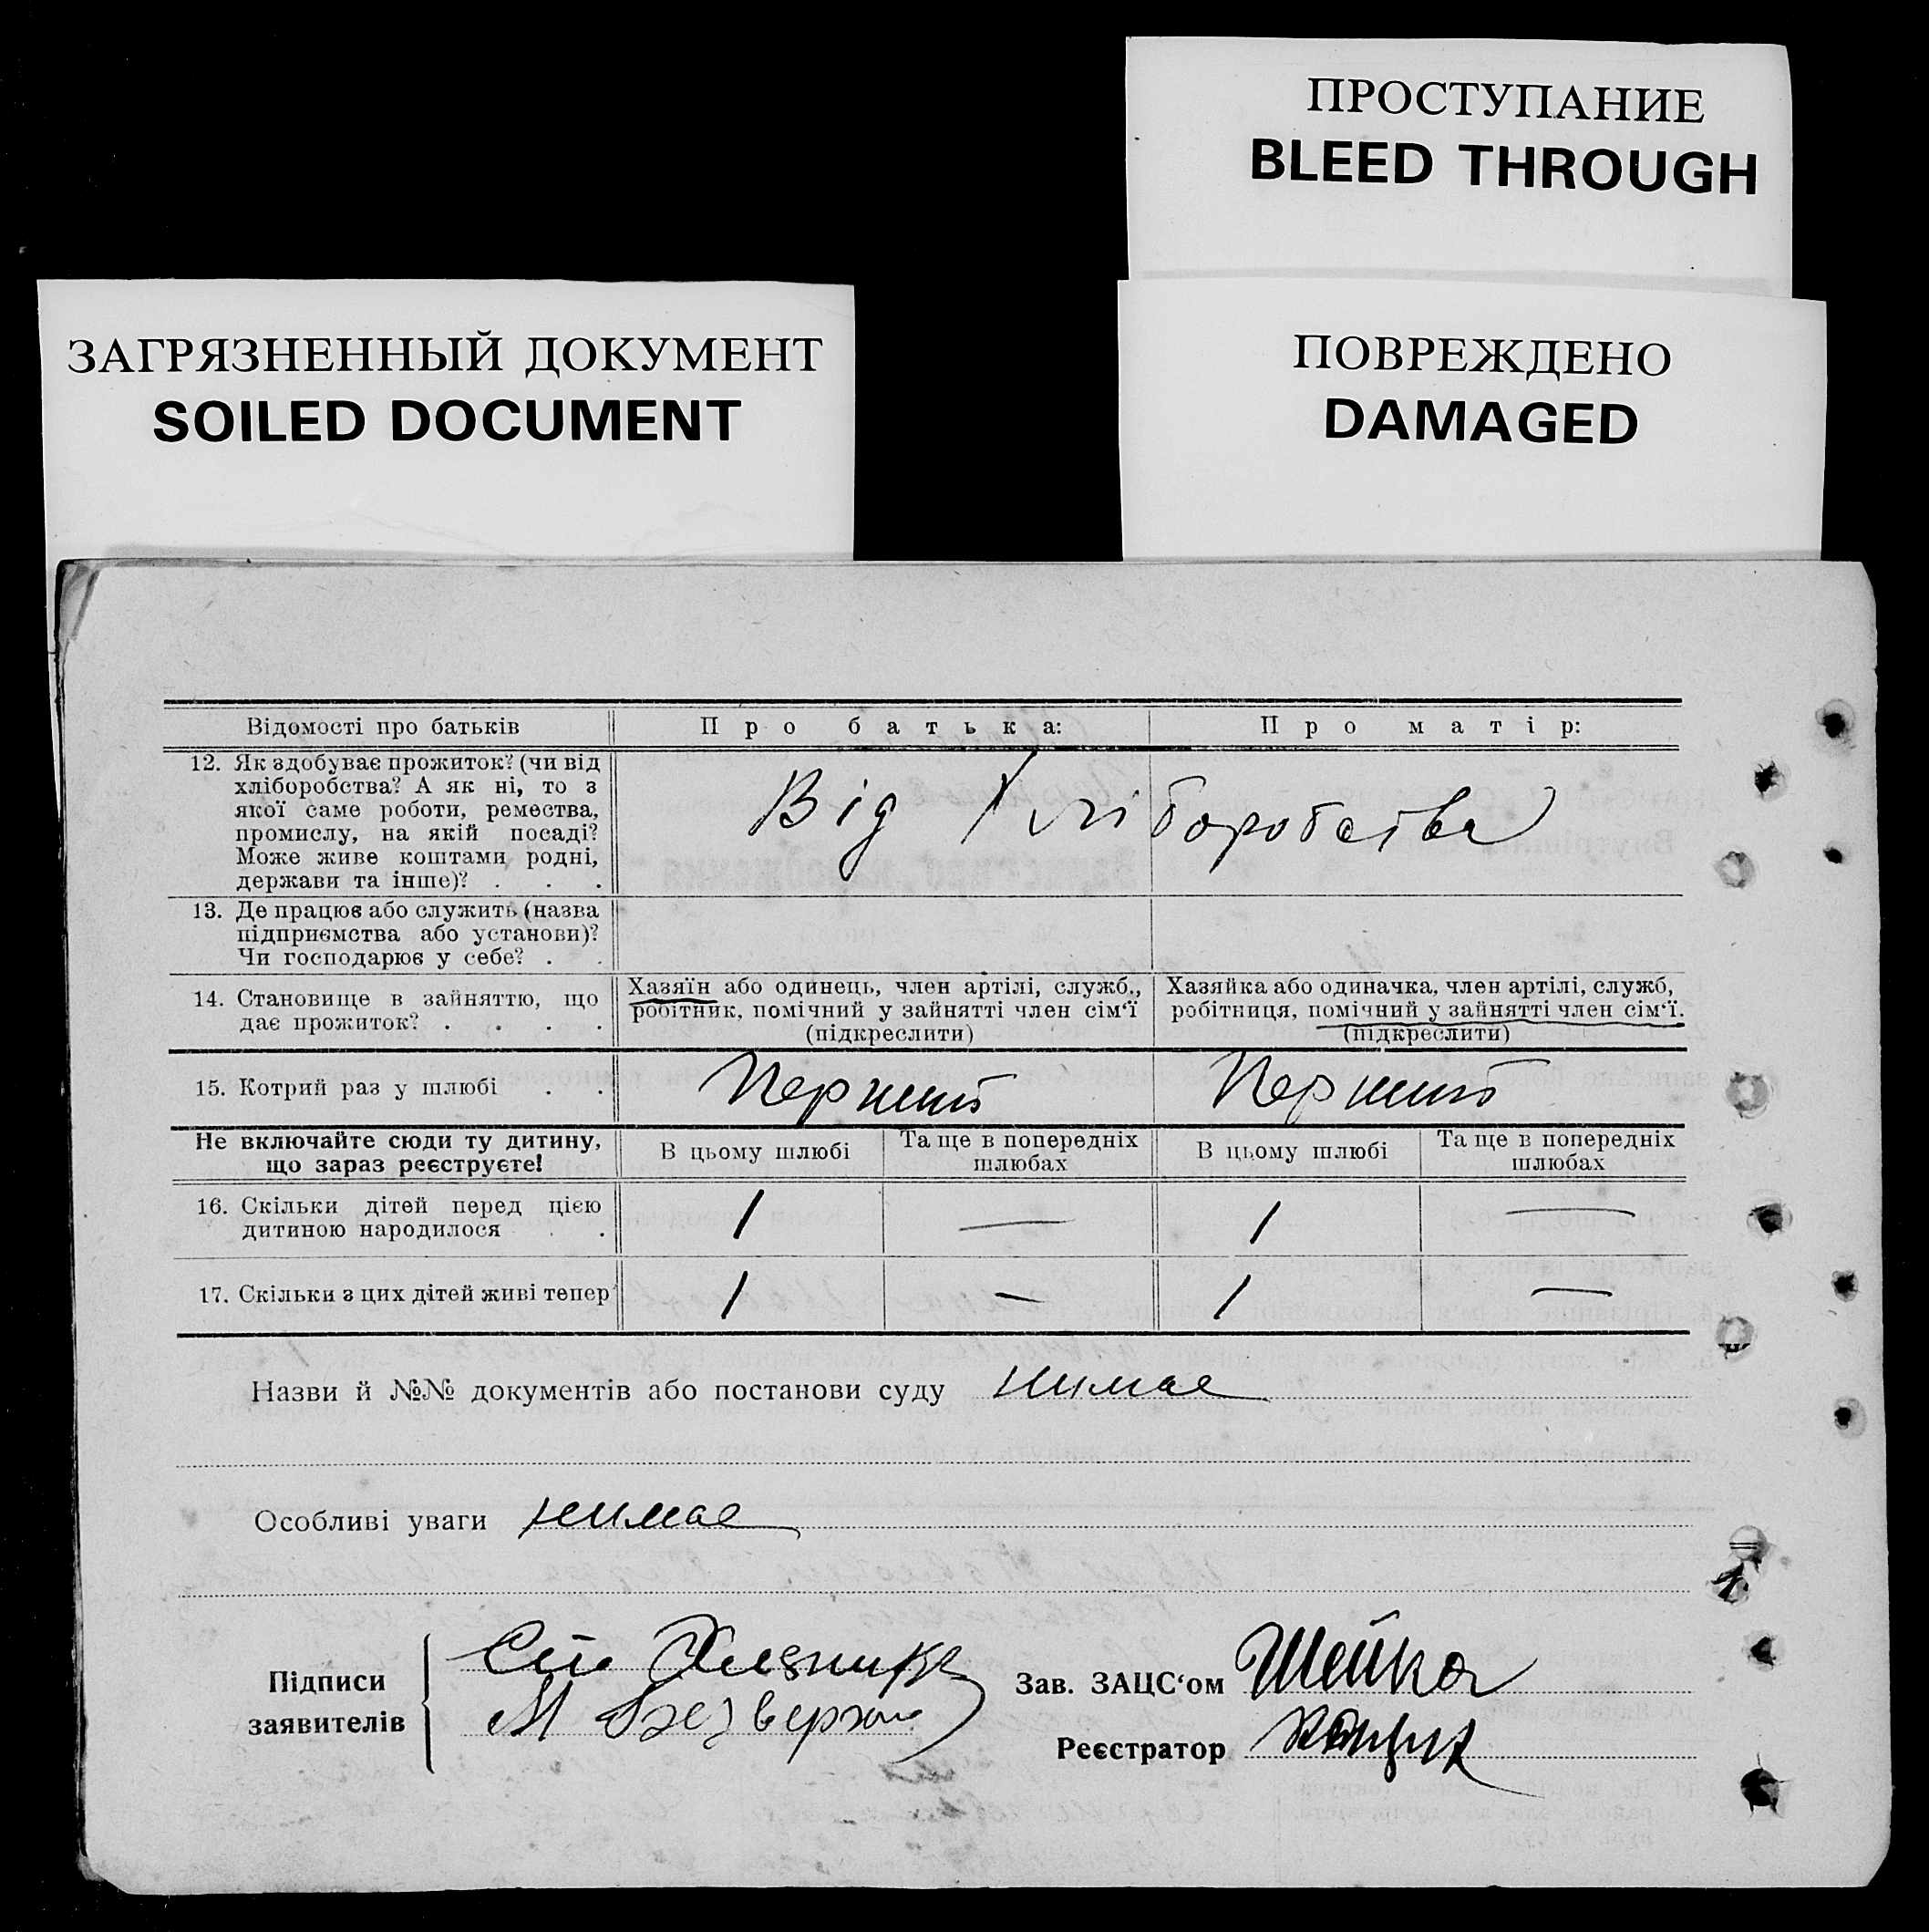 ПРОСТУПАНИЕ
BLEED THROUGH
ЗАГРЯЗНЕННЫЙ ДОКУМЕНТ
SOILED DOCUMENT
ПОВРЕЖДЕНО
DAMAGED
Відомості про батьків
Про батька:
Про матір:
12. Як здобуває прожиток? (чи від
хліборобства? А як ні, то з
якої саме роботи, ремества,
промислу, на якій посаді?
Може живе коштами родні,
держави та інше)? . . .
Від хліборобства
13. Де працює або служить (назва
підприємства або установи)?
Чи господарює у себе? . .
14. Становище в зайняттю, що
дає прожиток? . . . .
Хазяїн або одинець, член артілі, служб.,
робітник, помічний у зайнятті член сім'ї
(підкреслити)
Хазяйка або одиначка, член артілі, служб,
робітниця, помічний у зайнятті член сім'ї.
(підкреслити)
15. Котрий раз у шлюбі . .
Перший
Перший
Не включайте сюди ту дитину,
що зараз реєструєте!
В цьому шлюбі
Та ще в попередніх
шлюбах
В цьому шлюбі
Та ще в попередніх
шлюбах
16. Скільки дітей перед цією
дитиною народилося . .
1
—
1
—
17. Скільки з цих дітей живі тепер
1
—
1
—
Назви й №№ документів або постанови суду нимае
Особливі уваги нимае
Підписи
заявителів
М Безверх
Зав. ЗАЦС'ом Шейка
Реєстратор